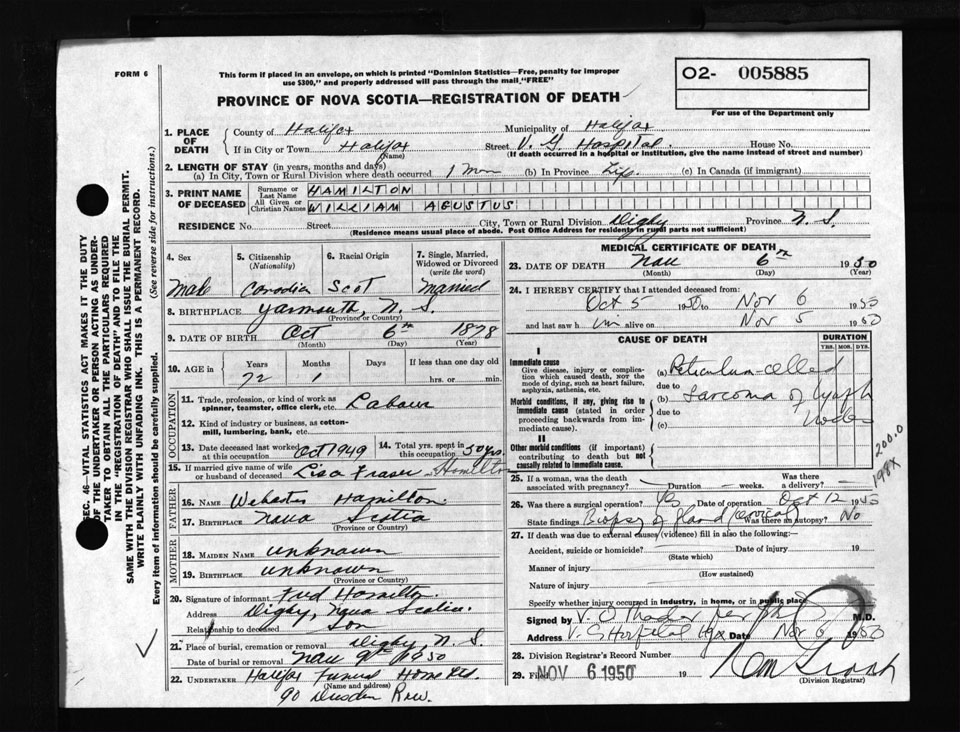 FORM 6
This form if placed in an envelope, on which is printed "Dominion Statistics—Free, penalty for improper
use $300," and properly addressed will pass through the mail "FREE"
O2- 005885
PROVINCE OF NOVA SCOTIA—REGISTRATION OF DEATH
For use of the Department only
1. PLACE OF DEATH
County of Halifax Municipality of Halifax
If in City or Town Halifax Street V. G. Hospital House No.
(Name) (If death occurred in a hospital or institution, give the name instead of street and number)
2. LENGTH OF STAY (in years, months and days)
(a) In City, Town or Rural Division where death occurred 1 Mon (b) In Province Life (c) In Canada (if immigrant)
3. PRINT NAME OF DECEASED
Surname or Last Name HAMILTON
All Given or Christian Names WILLIAM AGUSTUS
RESIDENCE No. Street City, Town or Rural Division Digby Province N. S.
(Residence means usual place of abode. Post Office Address for residents in rural parts not sufficient)
4. Sex
Male
5. Citizenship
(Nationality)
Canadian
6. Racial Origin
Scot
7. Single, Married,
Widowed or Divorced
(write the word)
Married
8. BIRTHPLACE Yarmouth, N. S.
(Province or Country)
9. DATE OF BIRTH Oct 6th 1878
(Month) (Day) (Year)
10. AGE in Years Months Days If less than one day old
72 1 hrs. or min.
OCCUPATION
11. Trade, profession, or kind of work as
spinner, teamster, office clerk, etc. Labour
12. Kind of industry or business, as cotton-
mill, lumbering, bank, etc.
13. Date deceased last worked
at this occupation Oct 1949
14. Total yrs. spent in
this occupation 50 yrs.
15. If married give name of wife
or husband of deceased Lisa Fraser Hamilton
FATHER
16. Name Webster Hamilton.
17. Birthplace Nova Scotia
(Province or Country)
MOTHER
18. Maiden Name unknown
19. Birthplace unknown
(Province or Country)
20. Signature of informant Fred Hamilton.
Address Digby, Nova Scotia.
Relationship to deceased Son
21. Place of burial, cremation or removal Digby, N. S.
Date of burial or removal Nov 9th 1950
22. Undertaker Halifax Funeral Home Ltd.
(Name and address)
90 Dresden Row.
MEDICAL CERTIFICATE OF DEATH
23. DATE OF DEATH Nov 6th 1950
(Month) (Day) (Year)
24. I HEREBY CERTIFY that I attended deceased from:
Oct 5 1950 to Nov 6 1950
and last saw him alive on Nov 5 1950
CAUSE OF DEATH
DURATION
YRS. MOS. DYS.
I
Immediate cause
Give disease, injury or complica-
tion which caused death, not the
mode of dying, such as heart failure,
asphyxia, asthenia, etc.
(a) Reticulum-celled
due to
Morbid conditions, if any, giving rise to
immediate cause (stated in order
proceeding backwards from im-
mediate cause).
(b) Sarcoma of lymph
due to nodes
(c)
II
Other morbid conditions (if important)
contributing to death but not
causally related to immediate cause.
200.0
198X
25. If a woman, was the death
associated with pregnancy? Duration weeks. Was there
a delivery?
26. Was there a surgical operation? Yes Date of operation Oct 12 1950
State findings Biopsy of gland (cervical) Was there an autopsy? No
27. If death was due to external causes (violence) fill in also the following:—
Accident, suicide or homicide? Date of injury 19
(State which)
Manner of injury
(How sustained)
Nature of injury
Specify whether injury occurred in industry, in home, or in public place
Signed by M.D.
Address V. G Hospital Hfx Date Nov 6 1950
28. Division Registrar's Record Number
29. Filed NOV 6 1950 19
(Division Registrar)
SEC. 46—VITAL STATISTICS ACT MAKES IT THE DUTY
OF THE UNDERTAKER OR PERSON ACTING AS UNDER-
TAKER TO OBTAIN ALL THE PARTICULARS REQUIRED
IN THE "REGISTRATION OF DEATH" AND TO FILE THE
SAME WITH THE DIVISION REGISTRAR WHO SHALL ISSUE THE BURIAL PERMIT.
WRITE PLAINLY WITH UNFADING INK. THIS IS A PERMANENT RECORD.
Every item of information should be carefully supplied. (See reverse side for instructions.)